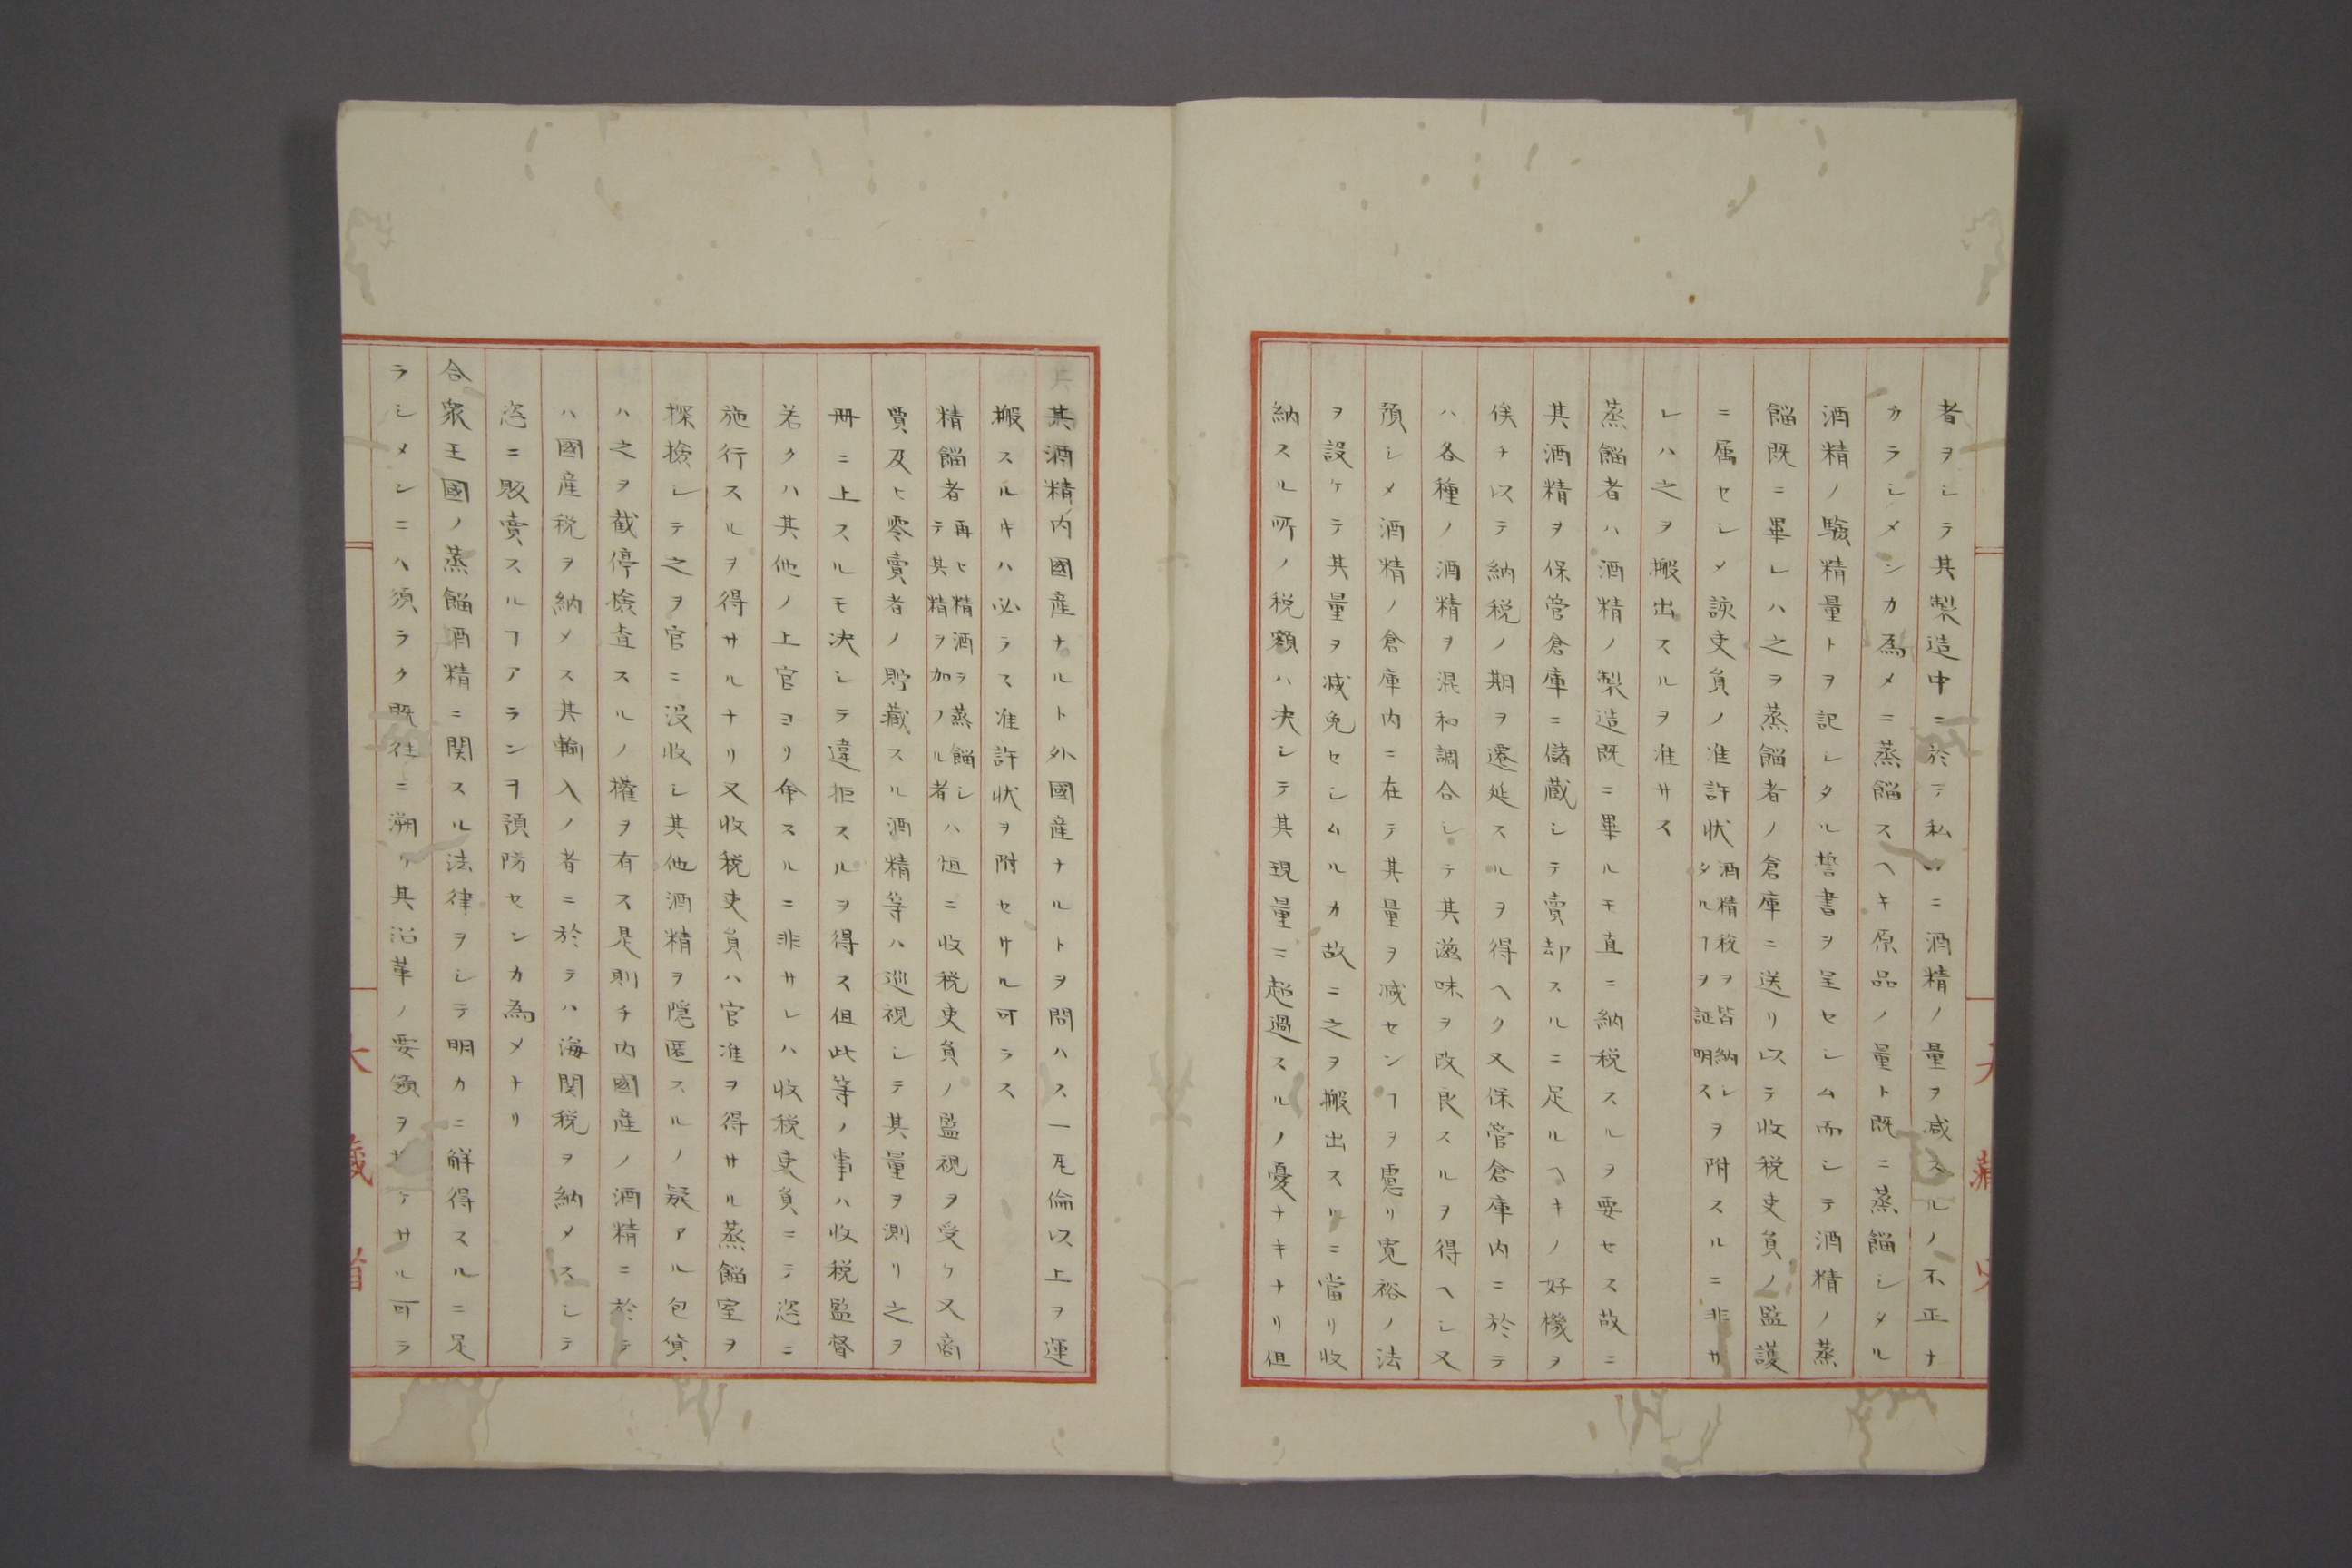 者ヲシテ其製造中ニ於テ私カニ酒精ノ量ヲ減スルノ不正ナ
カラシメンカ為メニ蒸餾スヘキ原品ノ量ト既ニ蒸餾シタル
酒精ノ験精量トヲ記シタル誓書ヲ呈セシム而シテ酒精ノ蒸
餾既ニ畢レハ之ヲ蒸餾者ノ倉庫ニ送リ以テ收税吏員ノ監護
ニ属セシメ該吏員ノ准許状酒精税ヲ皆納シタルヿヲ証明スヲ附スルニ非サ
レハ之ヲ搬出スルヲ准サス
蒸餾者ハ酒精ノ製造既ニ畢ルモ直ニ納税スルヲ要セス故ニ
其酒精ヲ保管倉庫ニ儲蔵シテ賣却スルニ足ルヘキノ好機ヲ
俟チ以テ納税ノ期ヲ遷延スルヲ得ヘク又保管倉庫内ニ於テ
ハ各種ノ酒精ヲ混和調合シテ其滋味ヲ改良スルヲ得ヘシ又
預シメ酒精ノ倉庫内ニ在テ其量ヲ減センヿヲ慮リ寛裕ノ法
ヲ設ケテ其量ヲ减免セシムルカ故ニ之ヲ搬出スルニ當リ收
納スル所ノ税額ハ决シテ其現量ニ超過スルノ憂ナキナリ但
其酒精内國産ナルト外國産ナルトヲ問ハス一瓦倫以上ヲ運
搬スルキハ必ラス准許状ヲ附セサル可ラス
精餾者再ヒ精酒ヲ蒸餾シテ其精ヲ加フル者ハ恒ニ收税吏員ノ監視ヲ受ケ又商
賈及ヒ零賣者ノ貯藏スル酒精等ハ巡視シテ其量ヲ測リ之ヲ
冊ニ上スルモ决シテ違拒スルヲ得ス但此等ノ事ハ收税監督
若クハ其他ノ上官ヨリ命スルニ非サレハ收税吏員ニテ恣ニ
施行スルヲ得サルナリ又收税吏員ハ官准ヲ得サル蒸餾室ヲ
探撿シテ之ヲ官ニ没收シ其他酒精ヲ隠匿スルノ疑アル包貨
ハ之ヲ截停撿査スルノ権ヲ有ス是則チ内國産ノ酒精ニ於テ
ハ國産税ヲ納メス其輸入ノ者ニ於テハ海関税ヲ納メスシテ
恣ニ販賣スルヿアランヲ預防センカ為メナリ
合衆王國ノ蒸餾酒精ニ関スル法律ヲシテ明カニ解得スルニ足
ラシメンニハ須ラク既往ニ溯リ其沿革ノ要領ヲ ケサル可ラ
大藏省